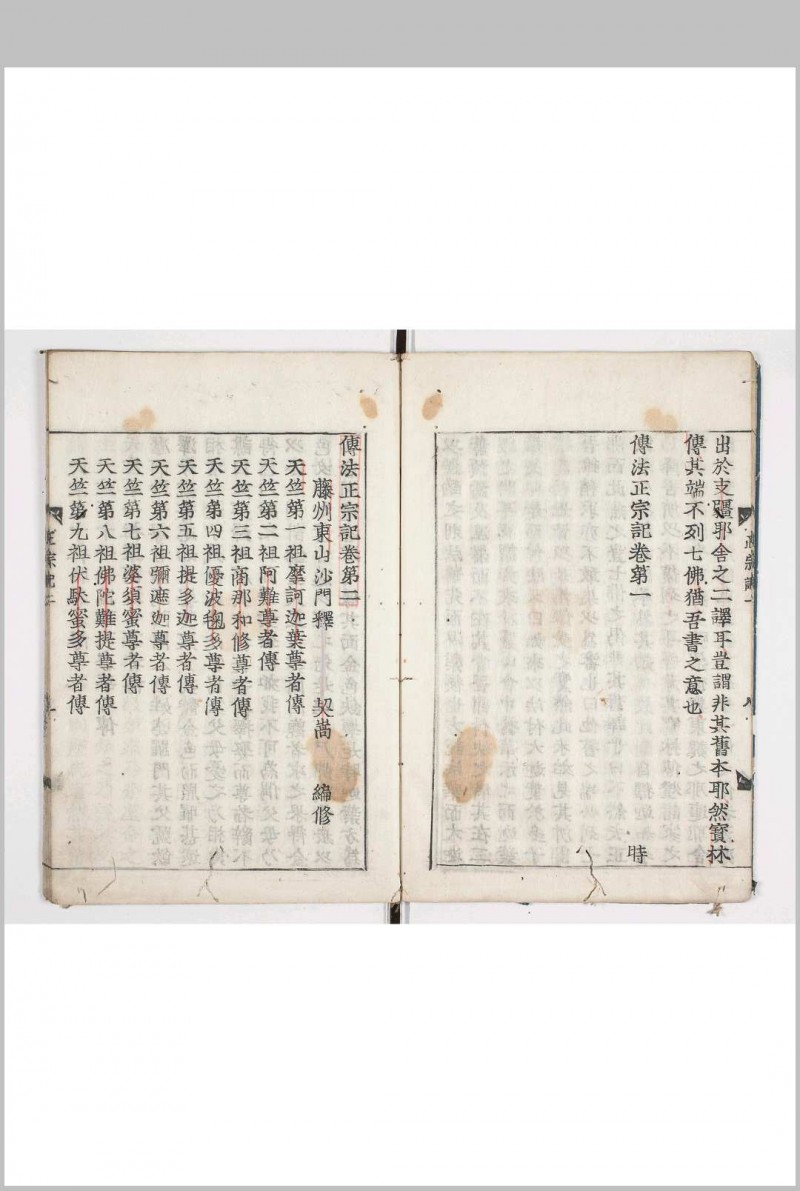 出於支疆耶舍之二譯耳豈謂非其舊本耶然寶林
傳其端不列七佛猶吾書之意也
傳法正宗記卷第一
時
傳法正宗記卷第二
藤州東山沙門釋 契嵩 編修
天竺第一祖摩訶迦葉尊者傳
天竺第二祖阿難尊者傳
天竺第三祖商那和修尊者傳
天竺第四祖優波毱多尊者傳
天竺第五祖提多迦尊者傳
天竺第六祖彌遮迦尊者傳
天竺第七祖婆須蜜尊者傳
天竺第八祖佛陀難提尊者傳
天竺第九祖伏馱蜜多尊者傳